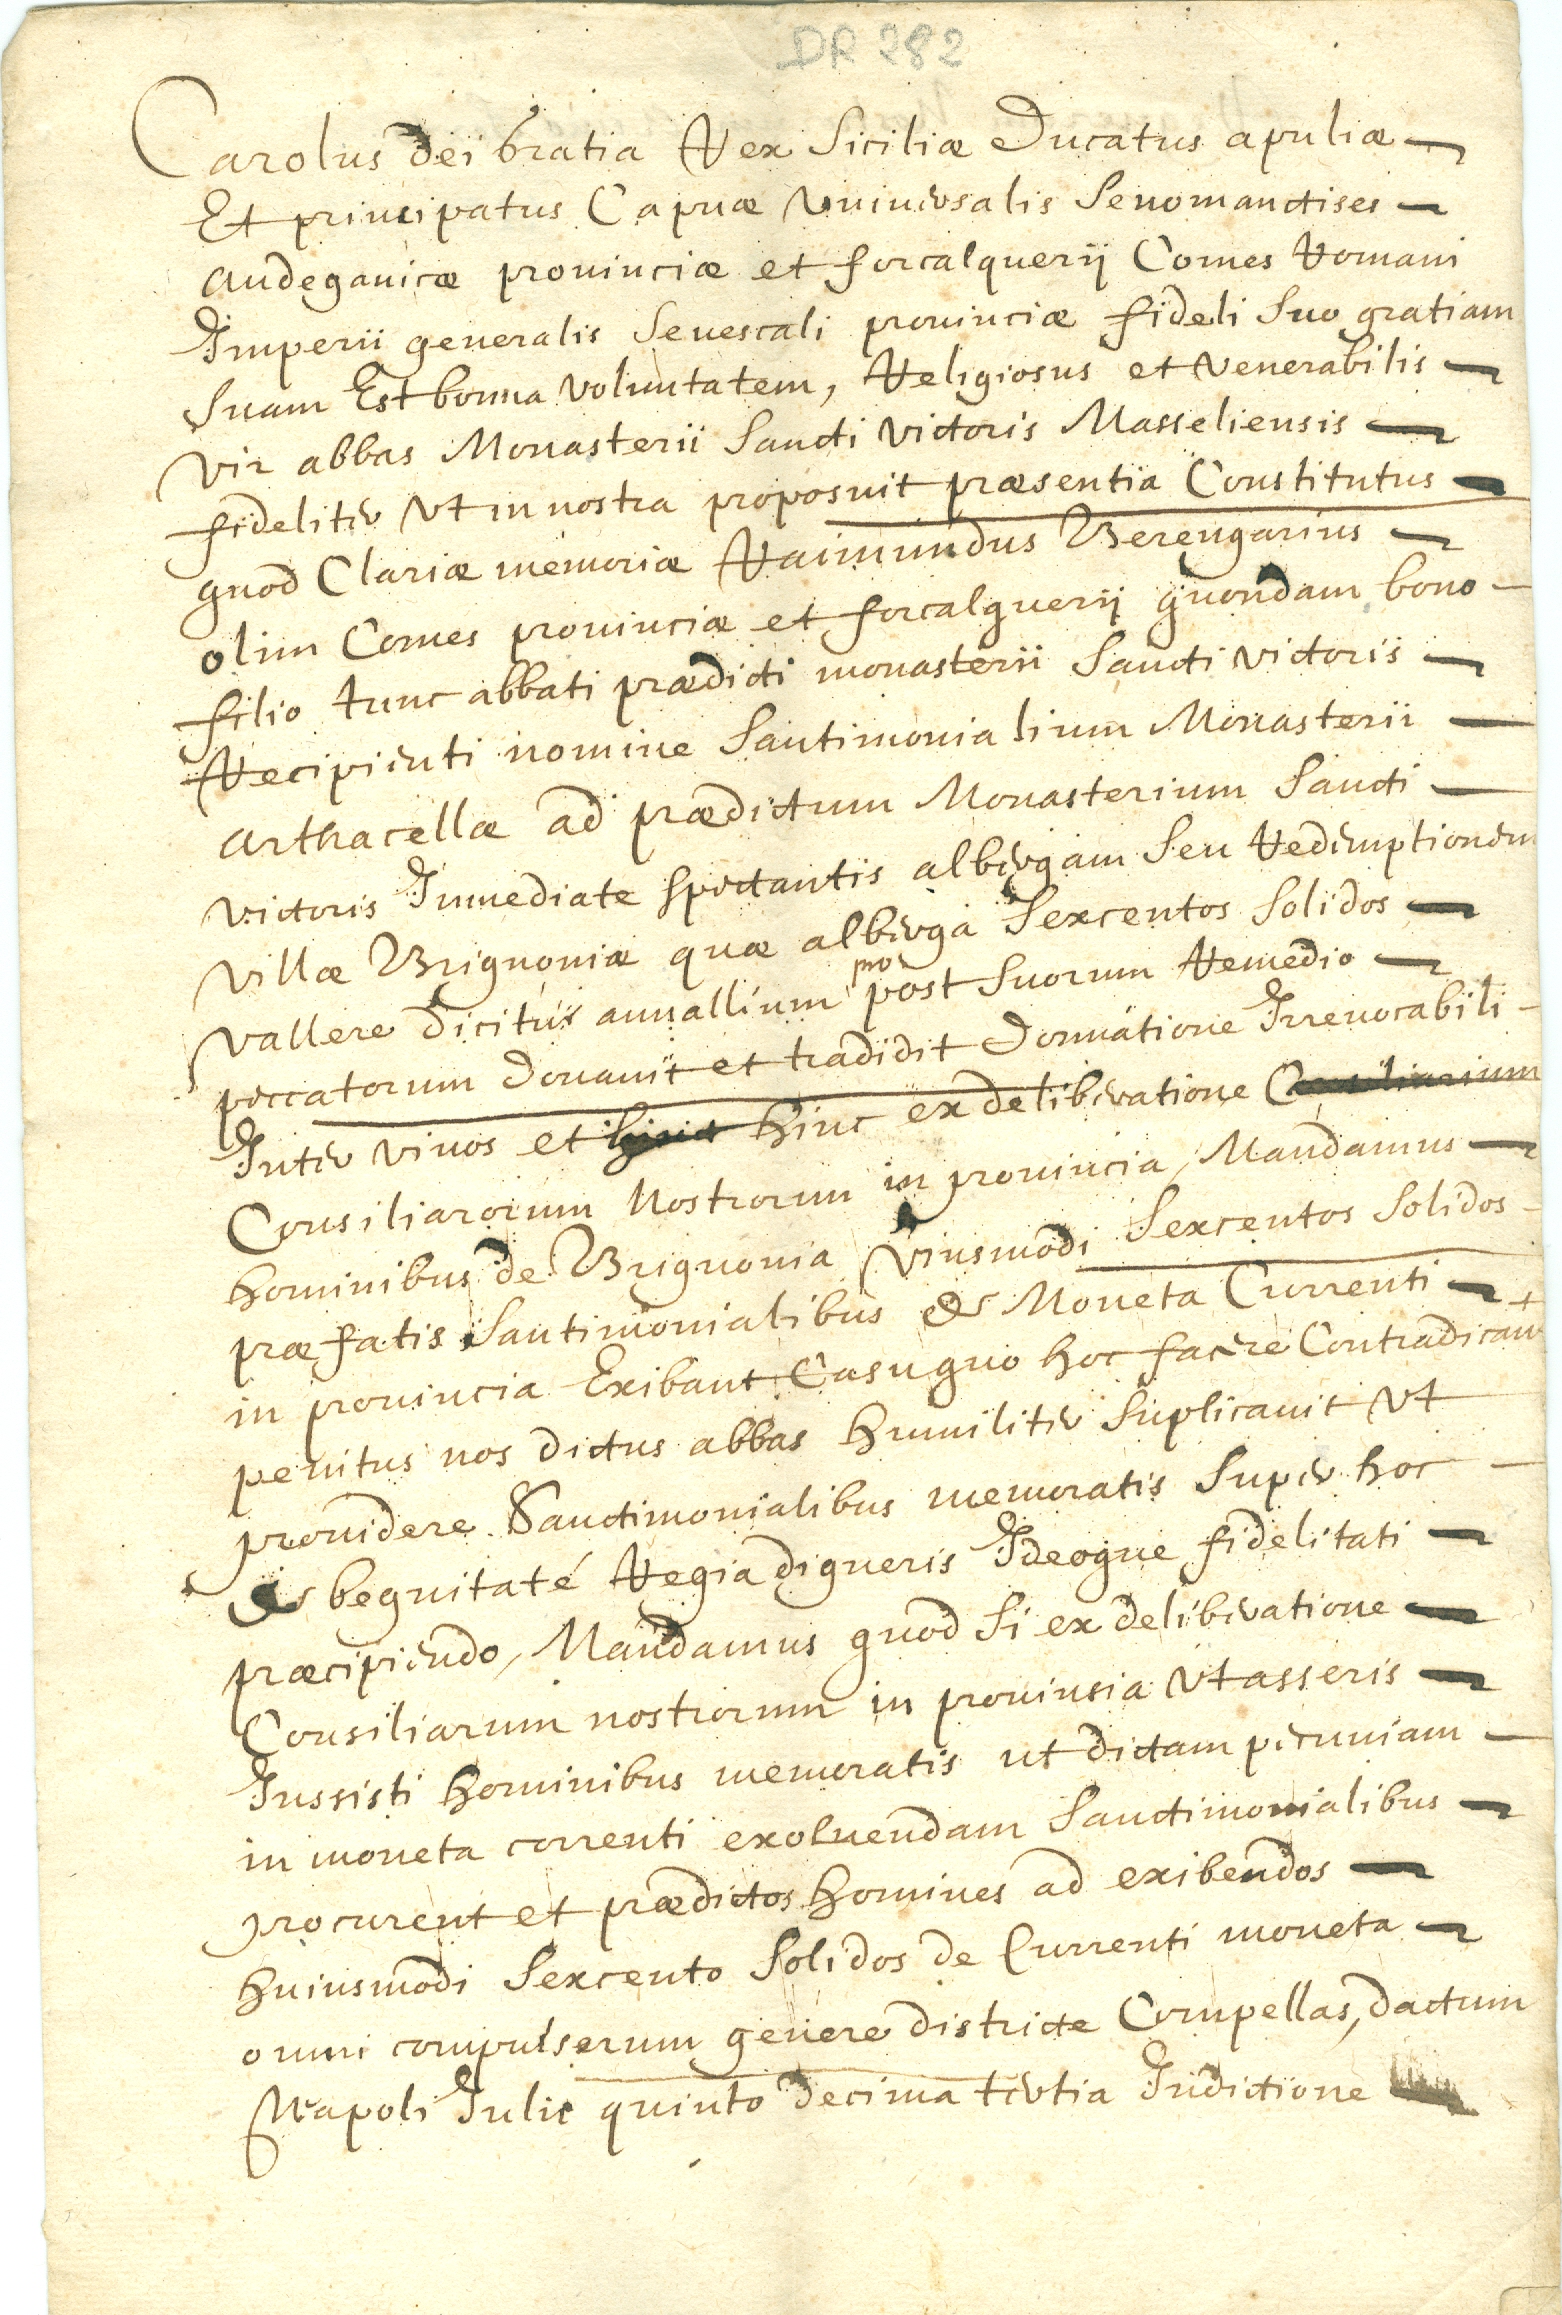 DR 282
Carolus dei bratia Rex Siciliæ Ducatus apuliæ
Et principatus Capuæ Vniversalis Senomanctises
Andeganicæ prouinciæ et forcalquerij Comes Romani
Imperii generalis Senescali prouinciæ fideli Suo gratiam
Suam Est bonna voluntatem, Religiosus et Venerabilis
Vir abbas Monasterii Sancti Victoris Masseliensis
fideliter Vt in nostra proposuit præsentia Constitutus
quod Clariæ memoriæ Raimundus Berengarius
olim Comes prouinciæ et forcalquerij quondam bono
filio tunc abbati prædicti monasterii Sancti Victoris
Recipienti nomine Santimonialium Monasterii
Arthacellæ ad prædictum Monasterium Sancti
Victoris Immediate spectantis albergam Seu Redemptionem
Villæ Brignoniæ quæ alberga Sexcentos Solidos
Vallere dicitur annallium pro post Suorum Remedio
peccatorum donauit et tradidit Donnatione Irreuocabili
Inter viuos et hinc ex deliberatione
Consiliarorum Nostrorum in prouincia, Mandamus
hominibus de Brignonia Viusmodi Sexcentos Solidos
præfatis Santimonialibus de Moneta Currenti
in prouincia Exibant Casuquo hoc facere Contradicant
penitus nos dictus abbas humiliter Suplicauit Vt
prouidere Sanctimonialibus memoratis Super hoc
de beguitaté Regia digneris Ideoque fidelitati
præcipiendo, Mandamus quod Si ex deliberatione
Consiliarum nostrorum in prouinsia Vt asseris
Jussisti hominibus memoratis ut dictam pecuniam
in moneta correnti exoluendam Sanctimonialibus
procurent et prædictos homines ad exibendos
huiusmodi Sexcento Solidos de Currenti moneta
omni compulserum genere districte Compellas, dactum
Napoli Julie quinto decima tertia Indictione